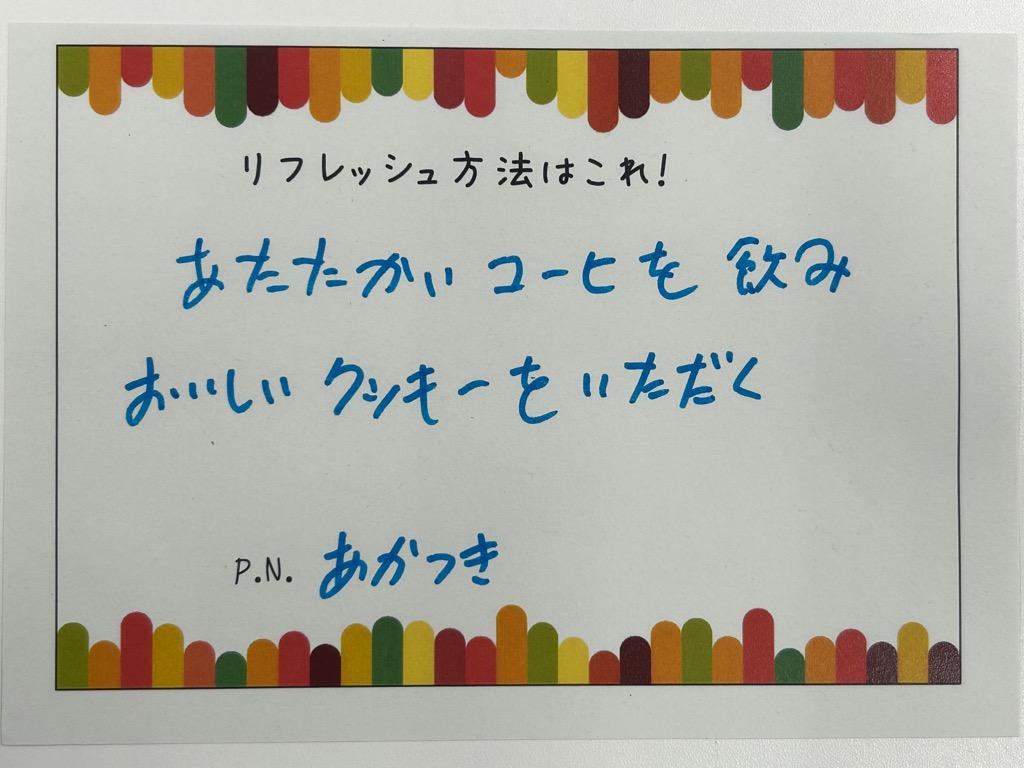 リフレッシュ方法はこれ!
あたたかい コーヒを 飲み
おいしい クッキーを いただく
P.N. あかつき